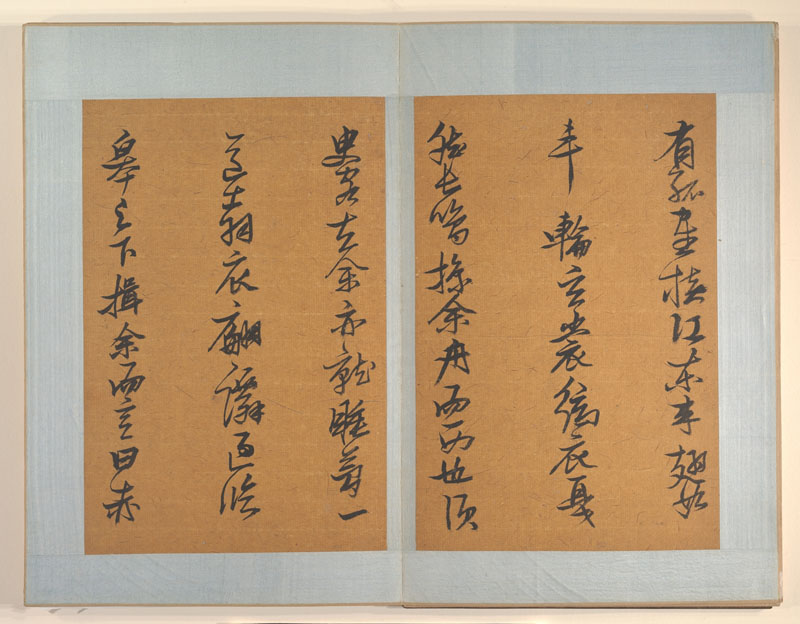 有孤鶴橫江東来翅如
車輪玄裳縞衣戛
然長鳴掠余舟而西也須
臾客去余亦就睡夢一
道士羽衣翩躚過臨
皋之下揖余而言曰赤